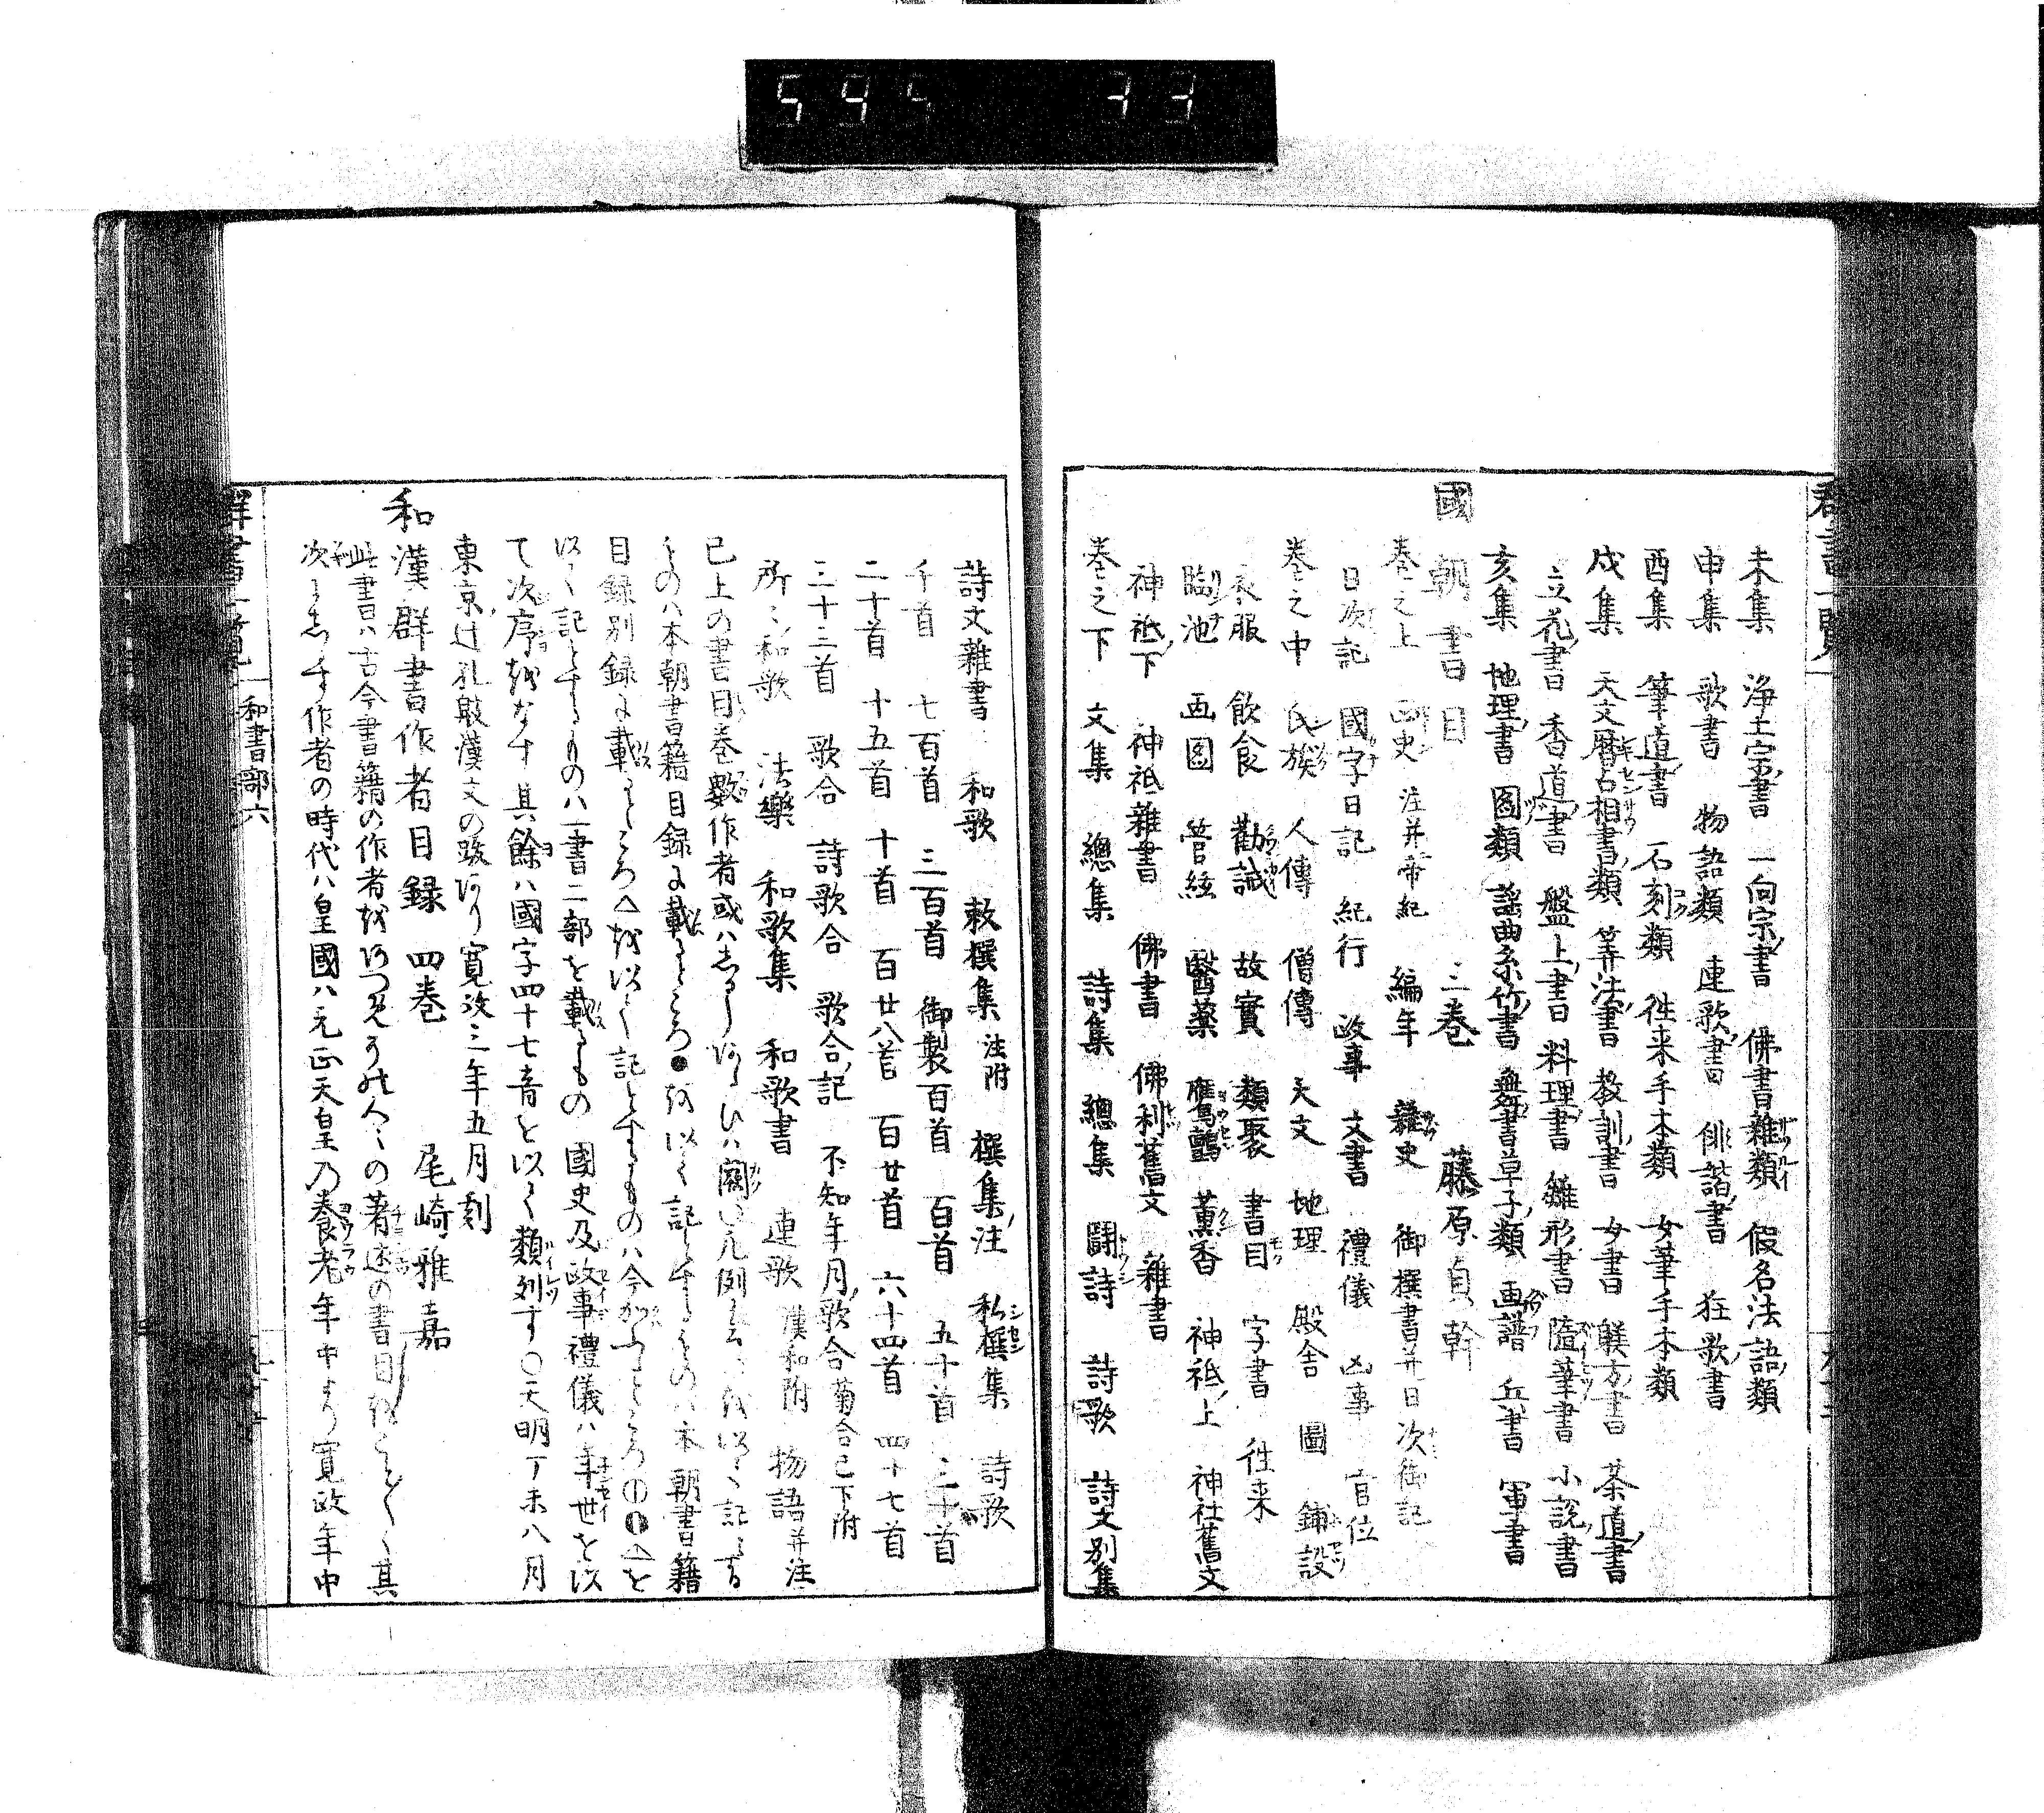 595 33
群書一覽
未集 浄土宗書 一向宗書 佛書雜類 假名法語類
申集 歌書 物語類 連歌書 俳諧書 狂歌書
酉集 筆道書 石刻類 徃来手本類 女筆手本類
戌集 天文暦占相書類 筭法書 教訓書 女書 躾方書 茶道書
立花書 香道書 盤上書 料理書 雛形書 隨筆書 小説書
亥集 地理書 圖類 謡曲糸竹書 舞書草子類 画譜 兵書 軍書
國朝書目 三巻 藤原貞幹
巻之上 正史 注并帝紀 編年 雜史 御撰書并日次御記
日次記 國字日記 紀行 政事 文書 禮儀 凶事 官位
巻之中 氏族 人傳 僧傳 天文 地理 殿舎 圖 鋪設
衣服 飲食 勸誡 故實 類聚 書目 字書 徃来
臨池 画図 管絃 醫藥 鷹鸇 薫香 神祇上 神社舊文
神祇下 神祇雜書 佛書 佛刹舊文 雜書
巻之下 文集 總集 詩集 總集 鬪詩 詩歌 詩文別集
詩文雜書 和歌 敕撰集 注附 撰集注 私撰集 詩歌
千首 七百首 三百首 御製百首 百首 五十首 三十首
二十首 十五首 十首 百廿八首 百廿首 六十四首 四十七首
三十三首 歌合 詩歌合 歌合記 不知年月歌合菊合已下附
所々和歌 法樂 和歌集 和歌書 連歌 漢和附 物語并注
已上の書目巻數作者或ハ
ものハ本朝書籍目録に載るところ●を以て記とするものハ本朝書籍
目録別録に載るところ△を以て記とするものハ今かふるところ①◐△を
以て記とするものハ一書二部を載るもの 國史及政事禮儀ハ年世を以
て次序をなす其餘ハ國字四十七音を以て類列す〇天明丁未八月
東京辻孔殷漢文の跋あり寛政三年五月刻
和漢群書作者目録 四巻 尾崎雅嘉
此書ハ古今書籍の作者をあつめその人々の著述の書目をことごとく其
次にしるす作者の時代ハ皇國ハ元正天皇乃養老年中より寛政年中
群書一覽
和書部六